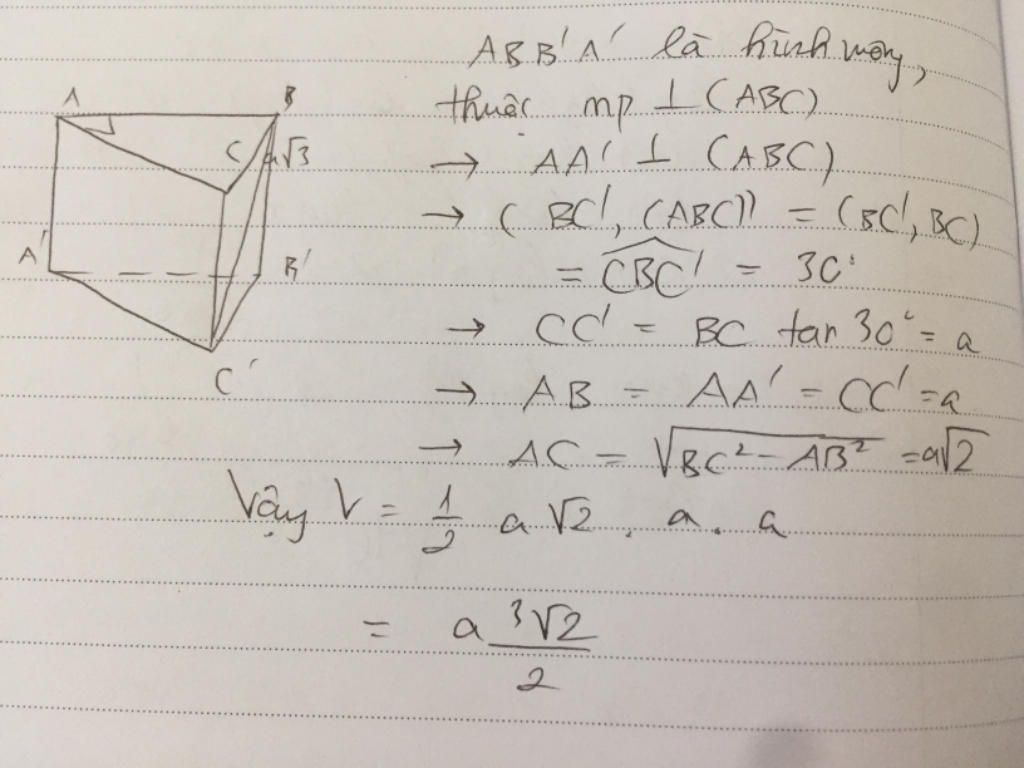 ABB'A' là hình vuông,
thuộc mp ⊥ (ABC)
→ AA' ⊥ (ABC)
→ (BC', (ABC)) = (BC', BC)
= CBC' = 30°
→ CC' = BC tan 30° = a
→ AB = AA' = CC' = a
→ AC = √(BC² - AB²) = a√2
Vậy V = 1/2 a√2 . a . a
= a³√2/2
A
B
C
a√3
A'
B'
C'